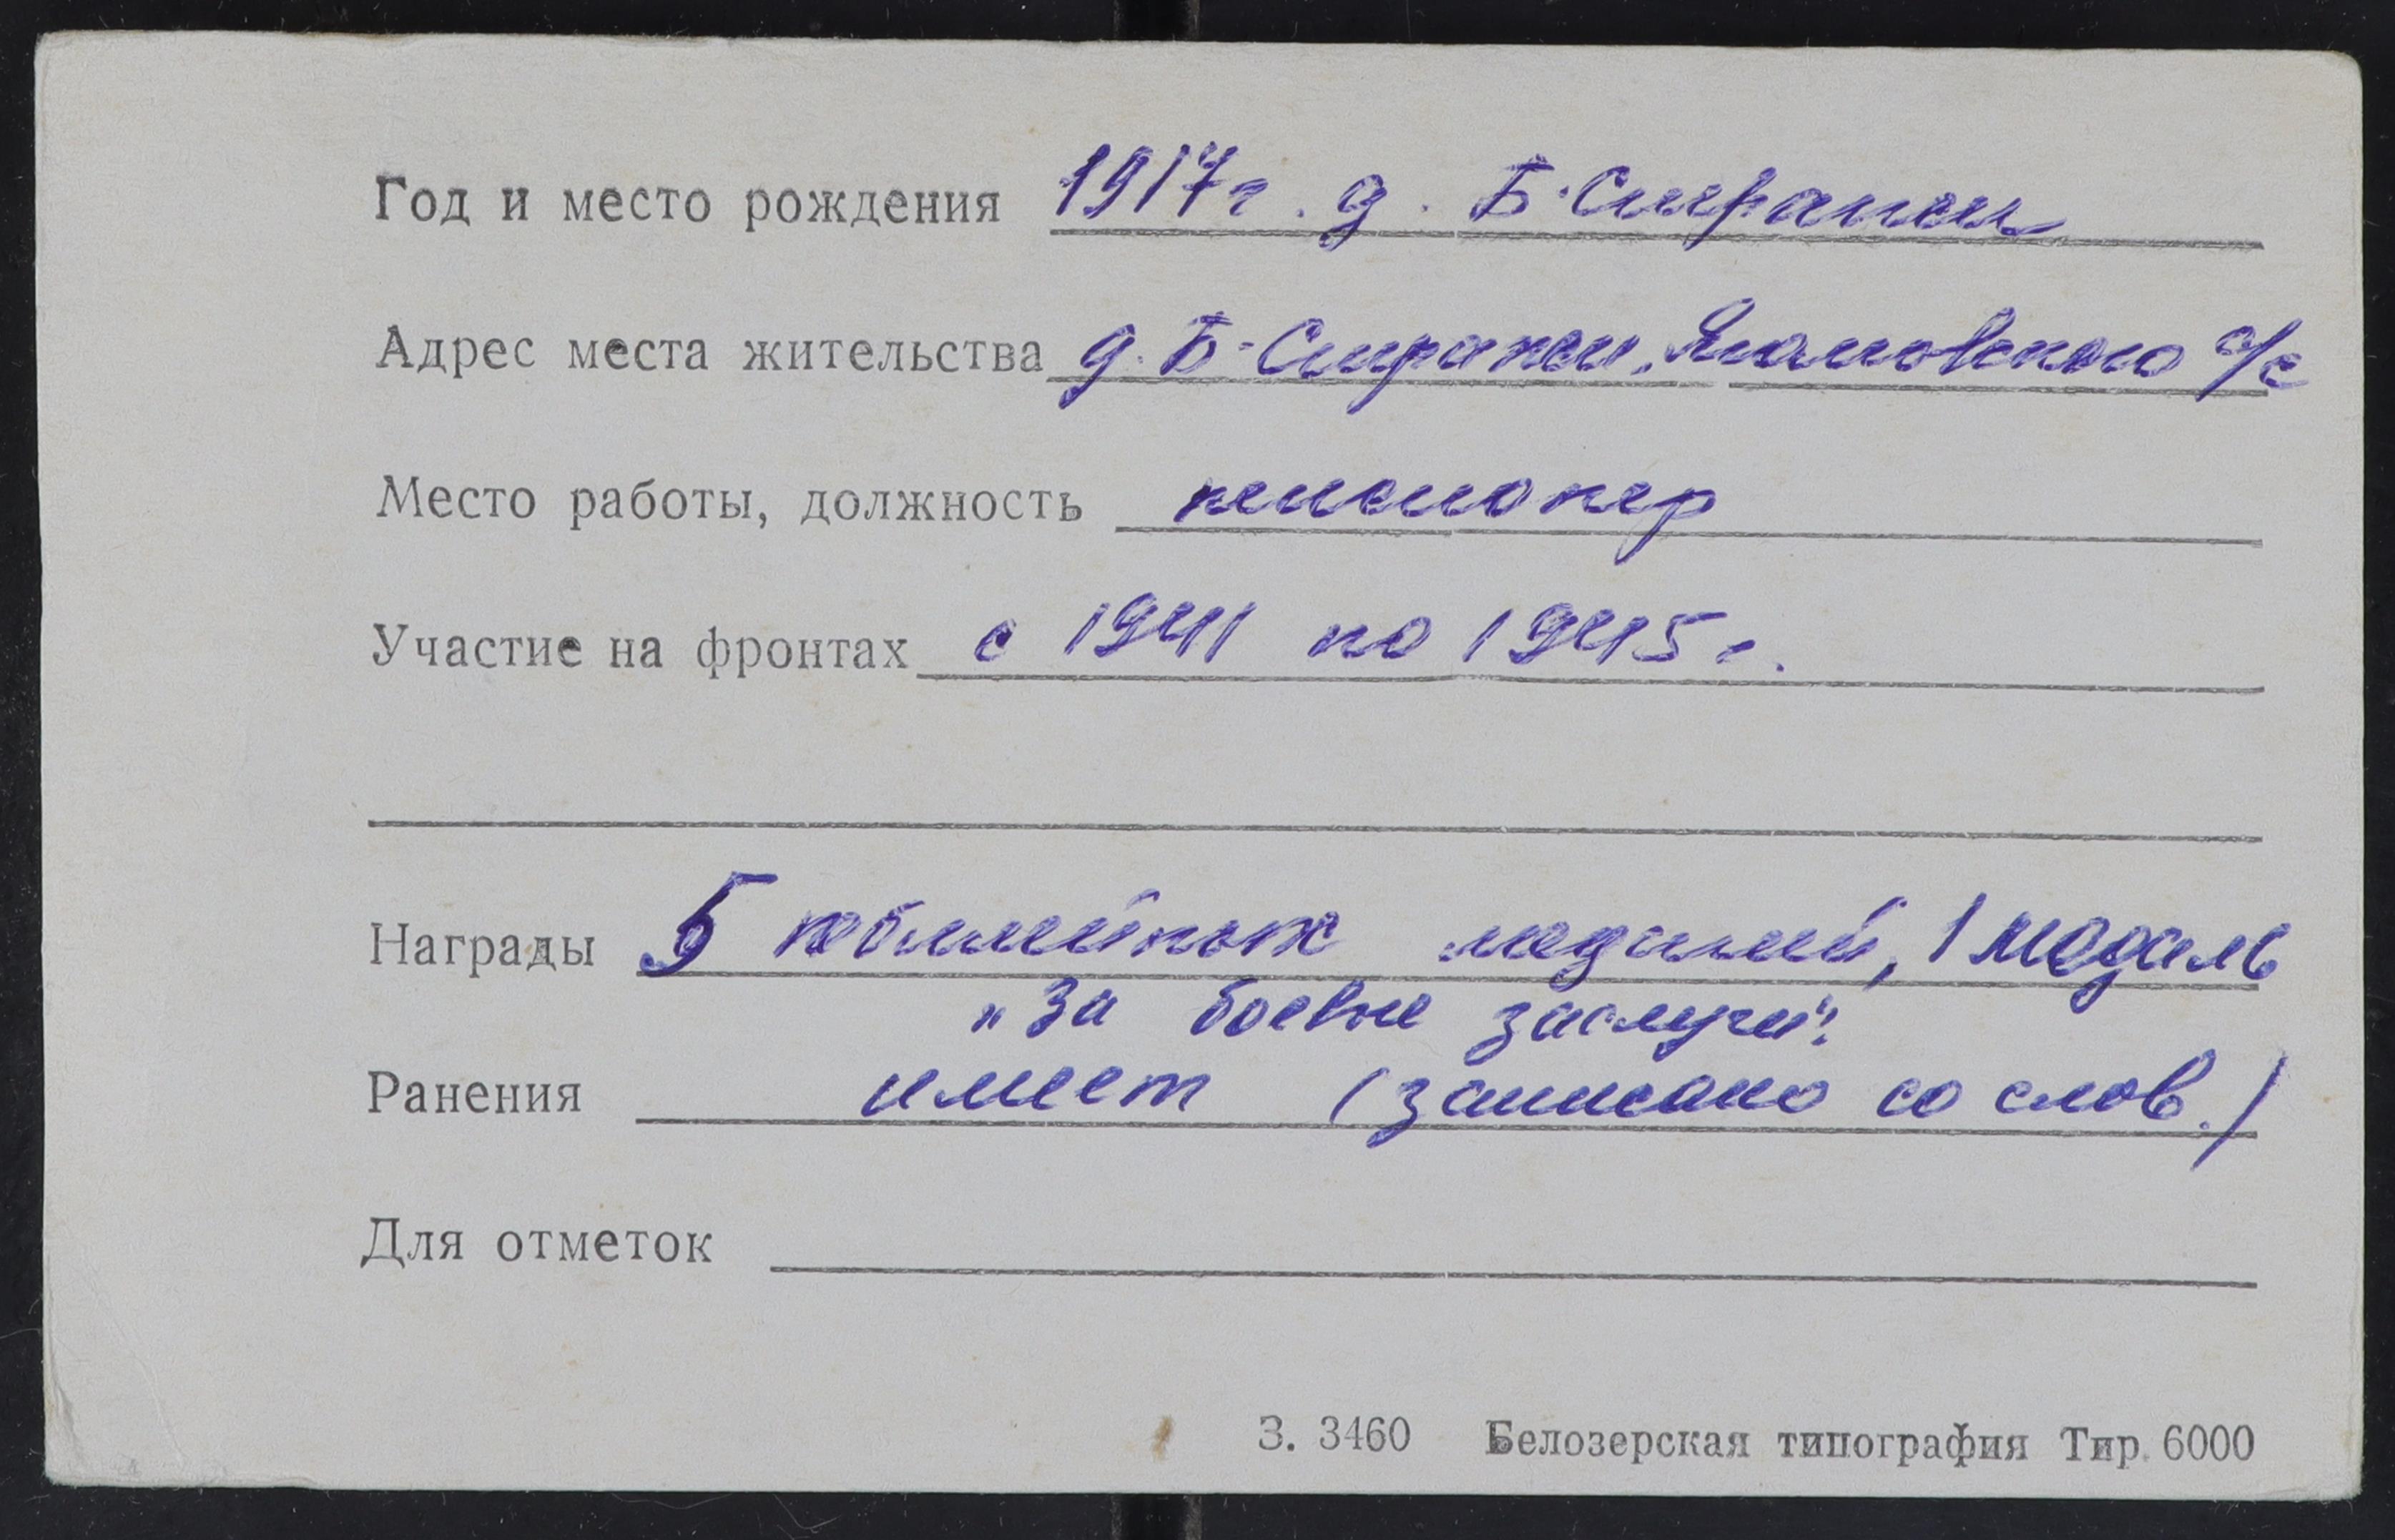 Год и место рождения 1917 г. д. Б-Сиранеи
Адрес места жительства д. Б-Сиранеи, с/с
Место работы, должность пенсионер
Участие на фронтах с 1941 по 1945 г.
Награды 5 юбилейных медалей, 1 медаль
"За боевые заслуги".
Ранения имеет (записано со слов.)
Для отметок
З. 3460 Белозерская типография Тир. 6000